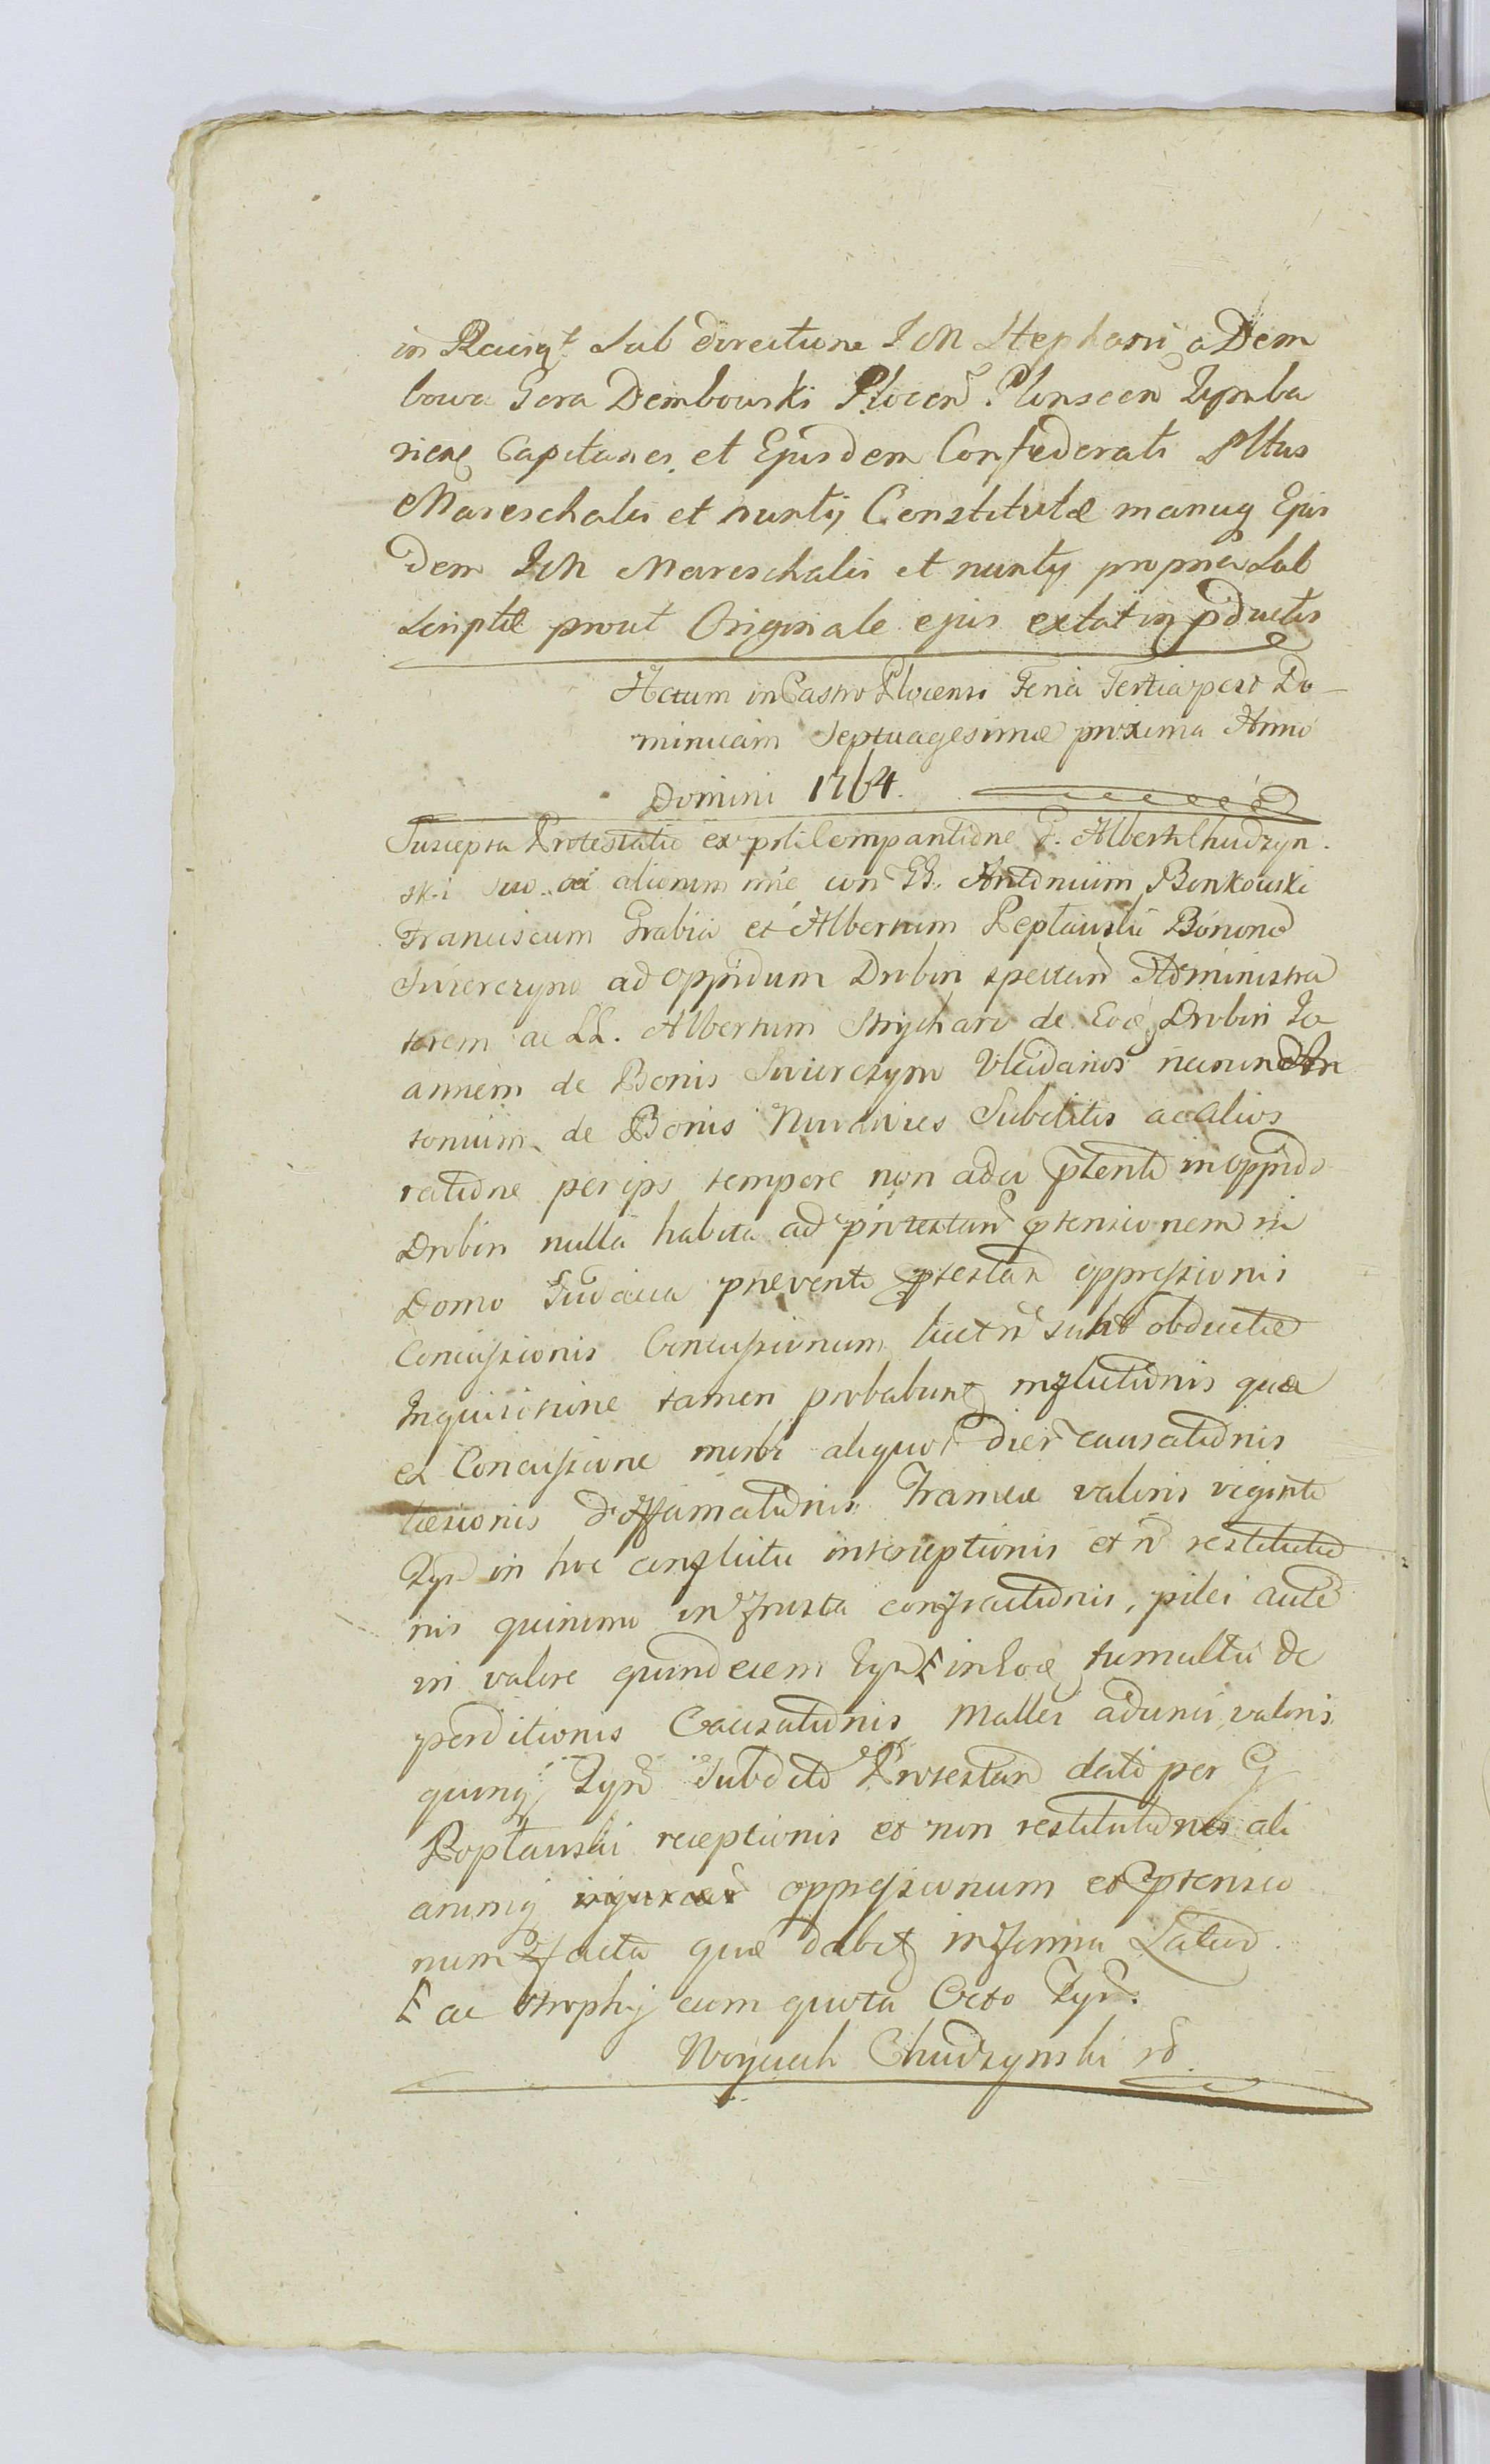 in Raciąż sub directione I M Stephani a Dem
bowa Gora Dembowski Plocen Plonscen Zymba
ricen Capitanei et Ejusdem Confæderati Pltus
Mareschalis et nuntij Constitutæ manuq Ejus
dem I M Mareschalis et nuntij propria sub
scriptæ prout Originale ejus extat in pductis
Actum in Castro Plocensi Feria Tertia post Do-
minicam Septuagesimæ proxima Anno
Domini 1764.
Suscepta Protestatio ex psli Compantione G. Alberti Chudzyn
ski suo ac aliorum nie con GG. Antonium Bonkowski
Franciscum Grabia et Albertum Reptawski Bonono
Swierczyno ad oppidum Drobin spectan Administra
torem ac LL. Albertum Strychari de Eoq Drobin Jo
annem de Bonis Swierczyno Uleidanos necnon An
tonium de Bonis Subditis ac alios
ratione per ips tempore non adeo ptento in oppido
Drobin nulla habita ad protestan ptensionem in
Domo Judaica prevento ptestan oppressionis
Concussionis Concussionum licet n sunt obductæ
Inquisitione tamen probabunt inflictionis quæ
ex Concussione morbi aliquot dier causationis
læsionis diffamationis Frameæ valoris viginti
Zyn in hoc conflictu interceptionis et n restitutio
nis quinimo in frusta confractionis, pilei aute
in valore quindecem Zyn in Eoq tumultu de
perditionis Causationis Mallei adunci valoris
quinq Zyn Subdito Protestan dati per G
Roptawski receptionis et non restitutionis ali
arumq oppressionum et ptensio
num facta quæ dabit inferius Latior.
ac strophij cum quota Octo Zyn.
Woyciech Chudzynski